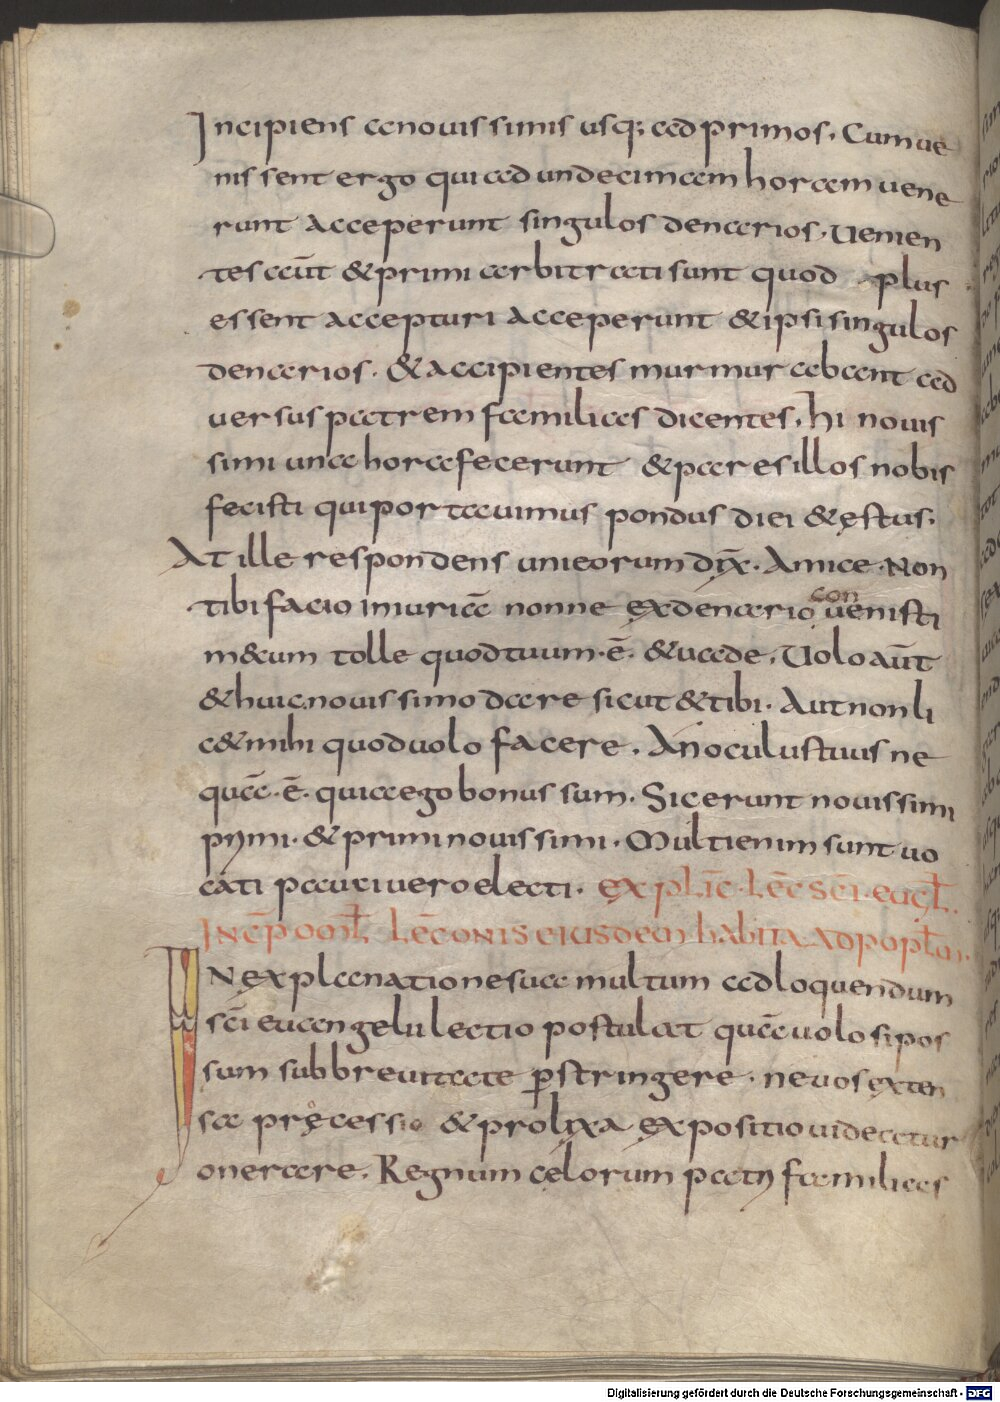 Incipiens a novissimis usq; ad primos. Cum ve
nissent ergo qui ad undecimam horam vene
runt acceperunt singulos denarios. Venien
tes aūt & primi arbitrati sunt quod plus
essent accepturi acceperunt & ipsi singulos
denarios. & accipientes murmurabant ad
versus patrem familias dicentes. hi novis
simi una hora fecerunt & pares illos nobis
fecisti qui portavimus pondus diei & ęstus.
At ille respondens uni eorum dix̄. Amice. Non
tibi facio iniuriā nonne ex denario con venisti
m&cum tolle quod tuum .ē. & vade. Volo aūt
& huic novissimo dare sicut & tibi. Aut non li
c& mihi quod volo facere. An oculus tuus ne
quā .ē. quia ego bonus sum. Sic erunt novissimi
primi. & primi novissimi. Multi enim sunt vo
cati pauci vero electi. explic̄. lēc scī. euḡl.
Incp̄ om̄l lēconis eiusdem habita ad pop̄lm.
IN explanatione sua multum ad loquendum
scī evangelii lectio postulat quā volo si pos
sum sub brevitate p̄stringere. ne vos exten
sa pręcessio & prolixa expositio videatur
onerare. Regnum cęlorum patri familias
Digitalisierung gefördert durch die Deutsche Forschungsgemeinschaft - DFG